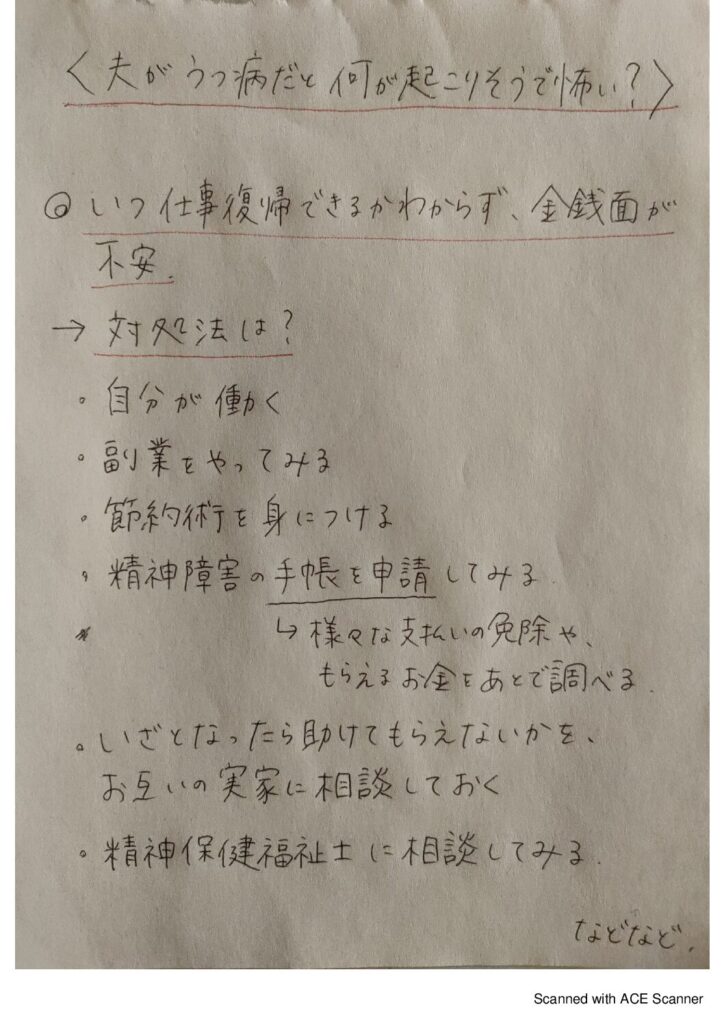 〈夫がうつ病だと何が起こりそうで怖い?〉
◎いつ仕事復帰できるかわからず、金銭面が
不安.
→ 対処法は?
・自分が働く
・副業をやってみる
・節約術を身につける
・精神障害の手帳を申請してみる.
↳ 様々な支払いの免除や、
もらえるお金をあとで調べる.
・いざとなったら助けてもらえないかを、
お互いの実家に相談しておく
・精神保健福祉士に相談してみる.
などなど.
Scanned with ACE Scanner